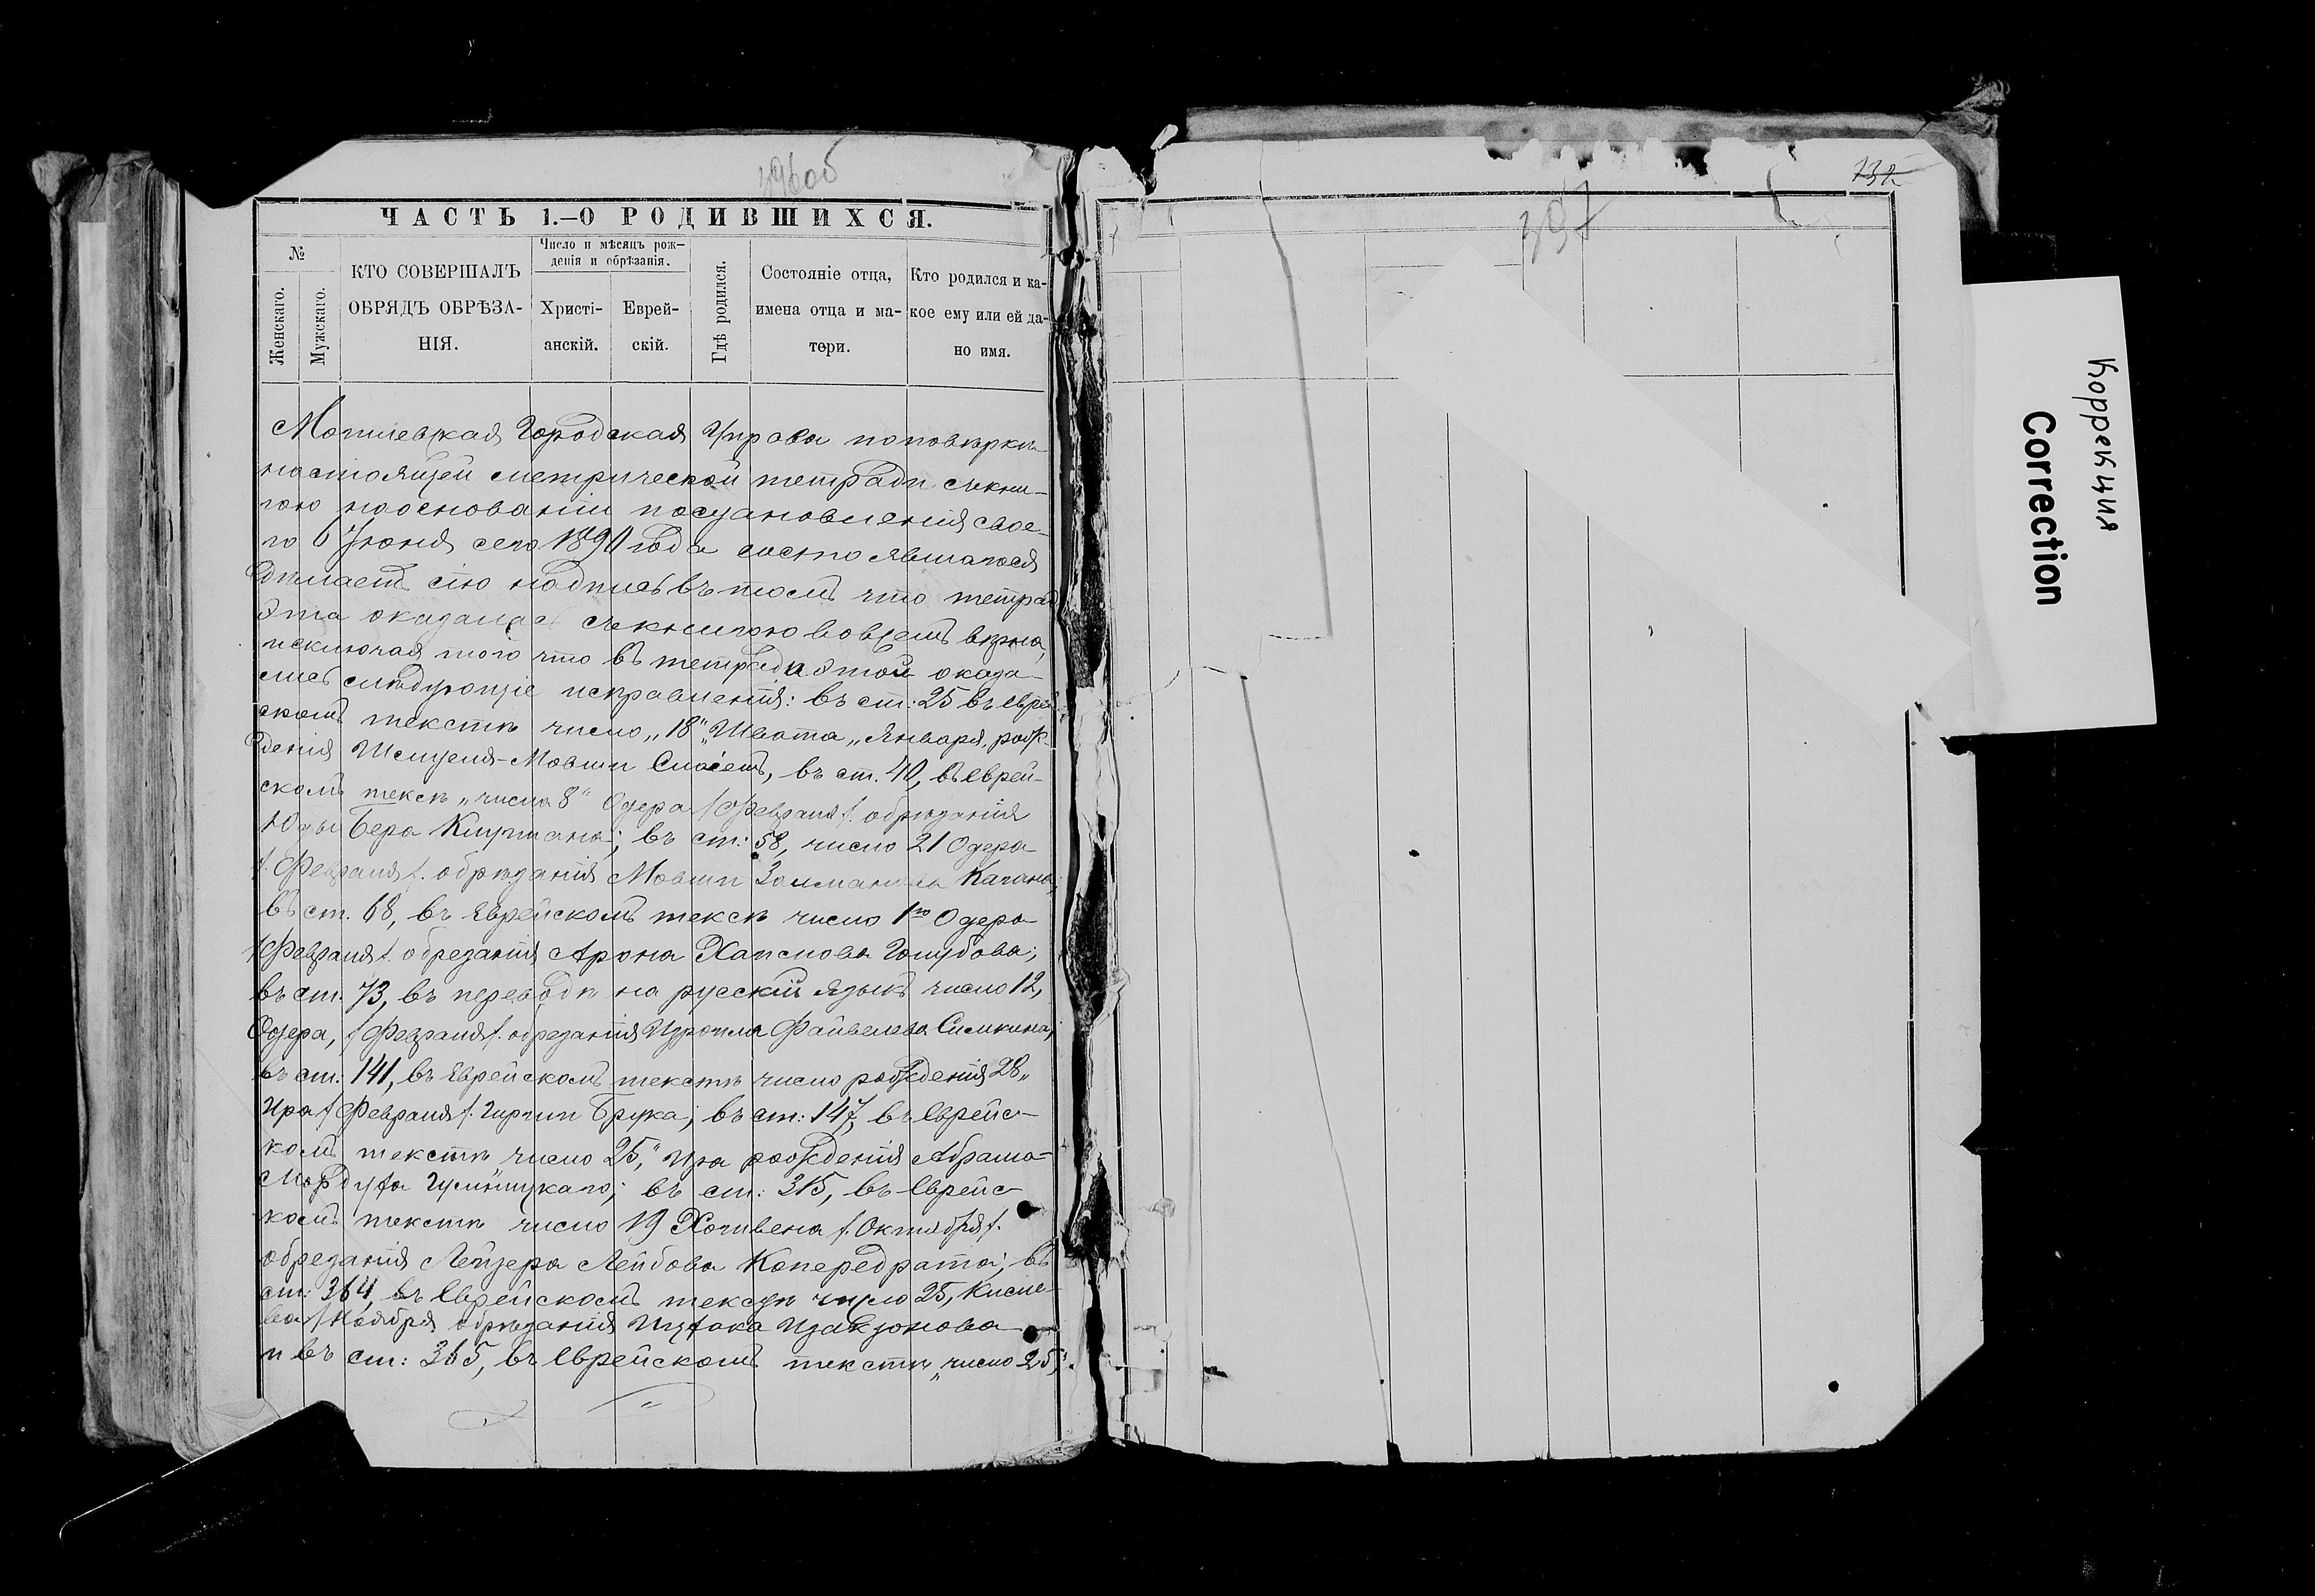 396об
ЧАСТЬ 1.—О РОДИВШИХСЯ.
№
Женскаго.
Мужскаго.
КТО СОВЕРШАЛЪ
ОБРЯДЪ ОБРѢЗА-
НІЯ.
Число и мѣсяцъ рож-
денія и обрѣзанія.
Христі-
анскій.
Еврей-
скій.
Гдѣ родился.
Состояніе отца,
имена отца и ма-
тери.
Кто родился и ка-
кое ему или ей да-
но имя.
Могилевская Городская Управа по повѣрки
настоящей метрической тетради съ кни-
гою на основаніи постановленія свое-
го 6 Іюня сего 1890 года состоявшагося
дѣлаетъ сію надпись въ томъ что тетрадь
эта оказалась съ книгою во всемъ вѣрна,
исключая того что въ тетради этой оказа-
лись слѣдующіе исправленія: въ ст: 25 въ еврей
скомъ текстѣ число „18" Швата „Января, рож-
денія Шмуеля-Мовши, въ ст. 40, въ еврей-
скомъ текстѣ „числа 8" Одера /Февраля/. обрѣзанія
Бера; въ ст: 58, число 21 Одера
/. Февраля /. обрѣзанія Мовши Залманова Кагана;
въ ст. 68, въ Еврейскомъ текстѣ число 1го Одера
/Февраля/. обрезанія Арона Хаимова Голубова;
въ ст. 73, въ переводѣ на русскій языкъ число 12,
Одера, /Февраля/. обрезанія Израиля Файвелева Симкина;
въ ст: 141, въ Еврейскомъ текстѣ число рожденія 28„
Ира /Февраля/. Брука; въ ст: 147, въ Еврейс-
комъ текстѣ число 25," Ира рожденія Абрама-
Мордуха; въ ст: 315, въ Еврейс-
комъ текстѣ число 19 Хешвена /. Октября/.
обрезанія Лейзера Лейбова; въ
ст: 364, въ Еврейскомъ текстѣ число 25, Кисле-
ва /Ноября обрѣзанія Ицхока
и въ ст: 365, въ Еврейскомъ текстѣ „число 25,"
132
397
Коррекция
Correction